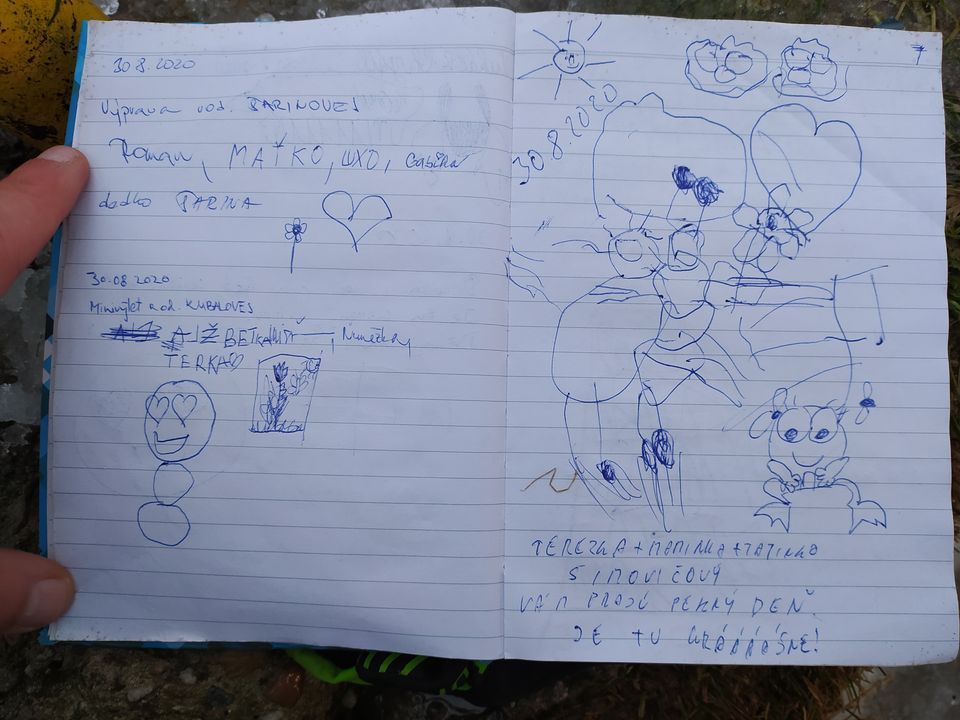 30.8.2020
Výprava rod. BARINOVEJ
Roman, MAŤKO, UXO, Gabika
dedko BARINA
30.08.2020
Minivýlet rod. KUBALOVEJ
ALŽBETKA
TERKA
7
30.8.2020
TEREZKA + MAMINKA + TATINKO
SIMOVIČOVÝ
VÁM PRAJÚ PEKNÝ DEŇ.
JE TU KRÁÁÁÁSNE!